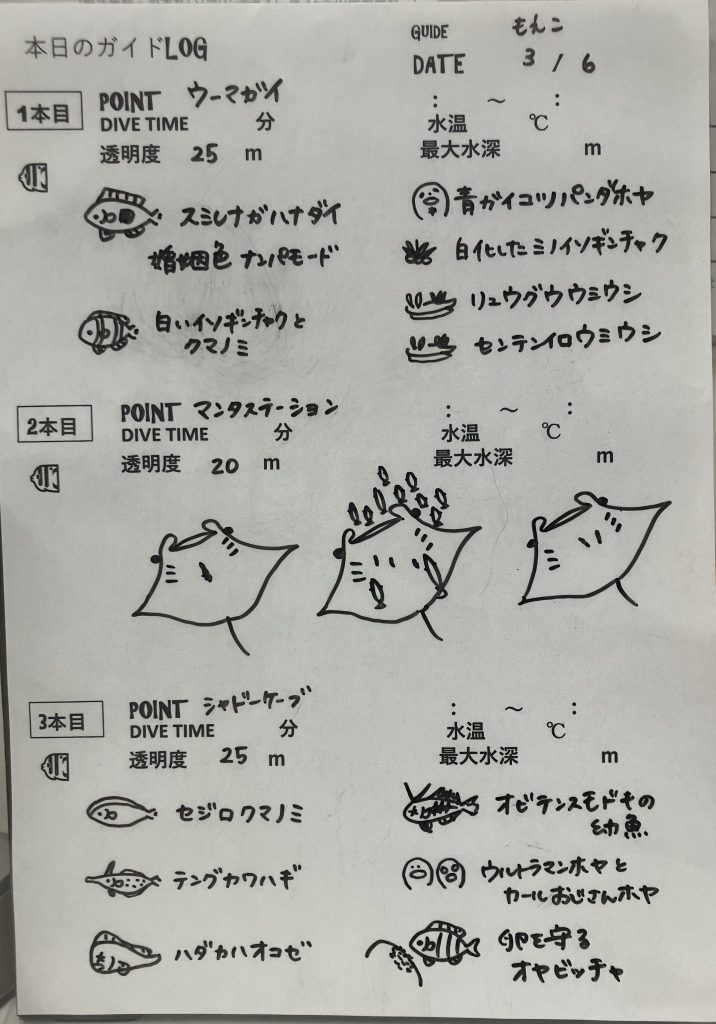 本日のガイドLOG
GUIDE もんこ
DATE 3 / 6
1本目
POINT ウーマガイ
DIVE TIME 分
透明度 25 m
: ～ :
水温 ℃
最大水深 m
スミレナガハナダイ
婚姻色 ナンパモード
白いイソギンチャクと
クマノミ
青ガイコツパンダホヤ
白化したミノイソギンチャク
リュウグウウミウシ
センテンイロウミウシ
2本目
POINT マンタステーション
DIVE TIME 分
透明度 20 m
: ～ :
水温 ℃
最大水深 m
3本目
POINT シャドーケーブ
DIVE TIME 分
透明度 25 m
: ～ :
水温 ℃
最大水深 m
セジロクマノミ
テングカワハギ
ハダカハオコゼ
オビテンスモドキの
幼魚
ウルトラマンホヤと
カールおじさんホヤ
卵を守る
オヤビッチャ